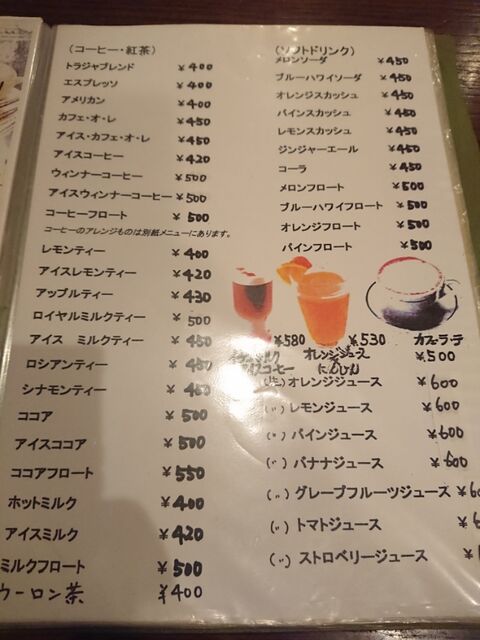 (コーヒー・紅茶)
トラジャブレンド ¥400
エスプレッソ ¥400
アメリカン ¥400
カフェ・オ・レ ¥450
アイス・カフェ・オ・レ ¥450
アイスコーヒー ¥420
ウィンナーコーヒー ¥500
アイスウィンナーコーヒー ¥500
コーヒーフロート ¥500
コーヒーのアレンジものは別紙メニューにあります。
レモンティー ¥400
アイスレモンティー ¥420
アップルティー ¥430
ロイヤルミルクティー ¥500
アイス ミルクティー ¥450
ロシアンティー ¥450
シナモンティー ¥450
ココア ¥500
アイスココア ¥500
ココアフロート ¥550
ホットミルク ¥400
アイスミルク ¥420
ミルクフロート ¥500
ウーロン茶 ¥400
(ソフトドリンク)
メロンソーダ ¥450
ブルーハワイソーダ ¥450
オレンジスカッシュ ¥450
パインスカッシュ ¥450
レモンスカッシュ ¥450
ジンジャーエール ¥450
コーラ ¥450
メロンフロート ¥500
ブルーハワイフロート ¥500
オレンジフロート ¥500
パインフロート ¥500
¥580
アイスコーヒー
¥530
オレンジジュース
にんじん
カフェラテ
¥500
(生)オレンジジュース ¥600
(〃)レモンジュース ¥600
(〃)パインジュース ¥600
(〃)バナナジュース ¥600
(〃)グレープフルーツジュース
(〃)トマトジュース
(〃)ストロベリージュース